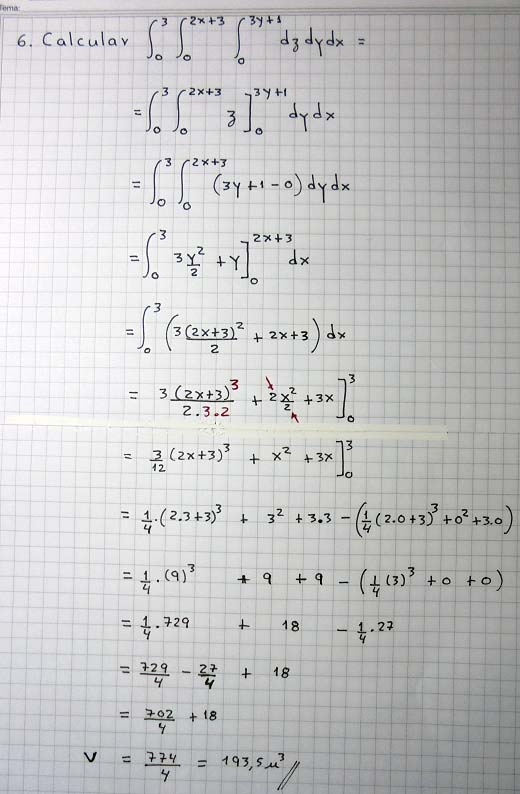 Tema:
6. Calcular ∫₀³ ∫₀^(2x+3) ∫₀^(3y+1) dz dy dx =
= ∫₀³ ∫₀^(2x+3) z ]₀^(3y+1) dy dx
= ∫₀³ ∫₀^(2x+3) (3y+1-0) dy dx
= ∫₀³ 3y²/2 + y ]₀^(2x+3) dx
= ∫₀³ (3(2x+3)²/2 + 2x+3) dx
= 3(2x+3)³/2.3.2 + 2x²/2 + 3x ]₀³
= 3/12 (2x+3)³ + x² + 3x ]₀³
= 1/4.(2.3+3)³ + 3² + 3.3 - (1/4(2.0+3)³+0²+3.0)
= 1/4.(9)³ + 9 + 9 - (1/4(3)³ + 0 + 0)
= 1/4.729 + 18 - 1/4.27
= 729/4 - 27/4 + 18
= 702/4 + 18
V = 774/4 = 193,5 u³ //